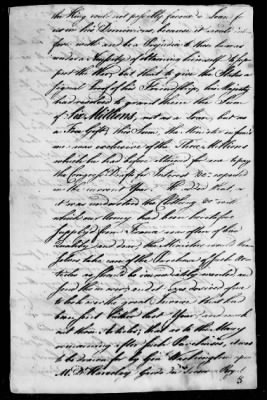 the King could not possibly favour a Loan for
us in his Dominions, because it would
and be a Prejudice to those he was
under a Necessity of obtaining himself to sup
port the War, but that to give the States a
signal Proof of his Friendship, his Majesty
had resolved to grant them the Sum
of Six Millions, not as a Loan, but as
a Free Gift. This Sum, the Minister inform'd
me was exclusive of the Three Millions
which he had before obtained for me to pay
the Congress Drafts for Interest &c. expected
in the current Year. He added that, as
it was understood the Clothing &c. with
which our Army had been heretofore
supplyed from France was often of bad
Quality and dear, the Minister would him
self take care of the Purchase of such Ar
ticles as should be immediately wanted and
send them over, and it was desired of me
to the great Invoice that had
been sent hither last Year, and mark
out those Articles; that as to the Money
remaining after such Purchases, it was
to be drawn for by Gen. Washington upon
M. D'Harvelay Garde du Tresor Royal